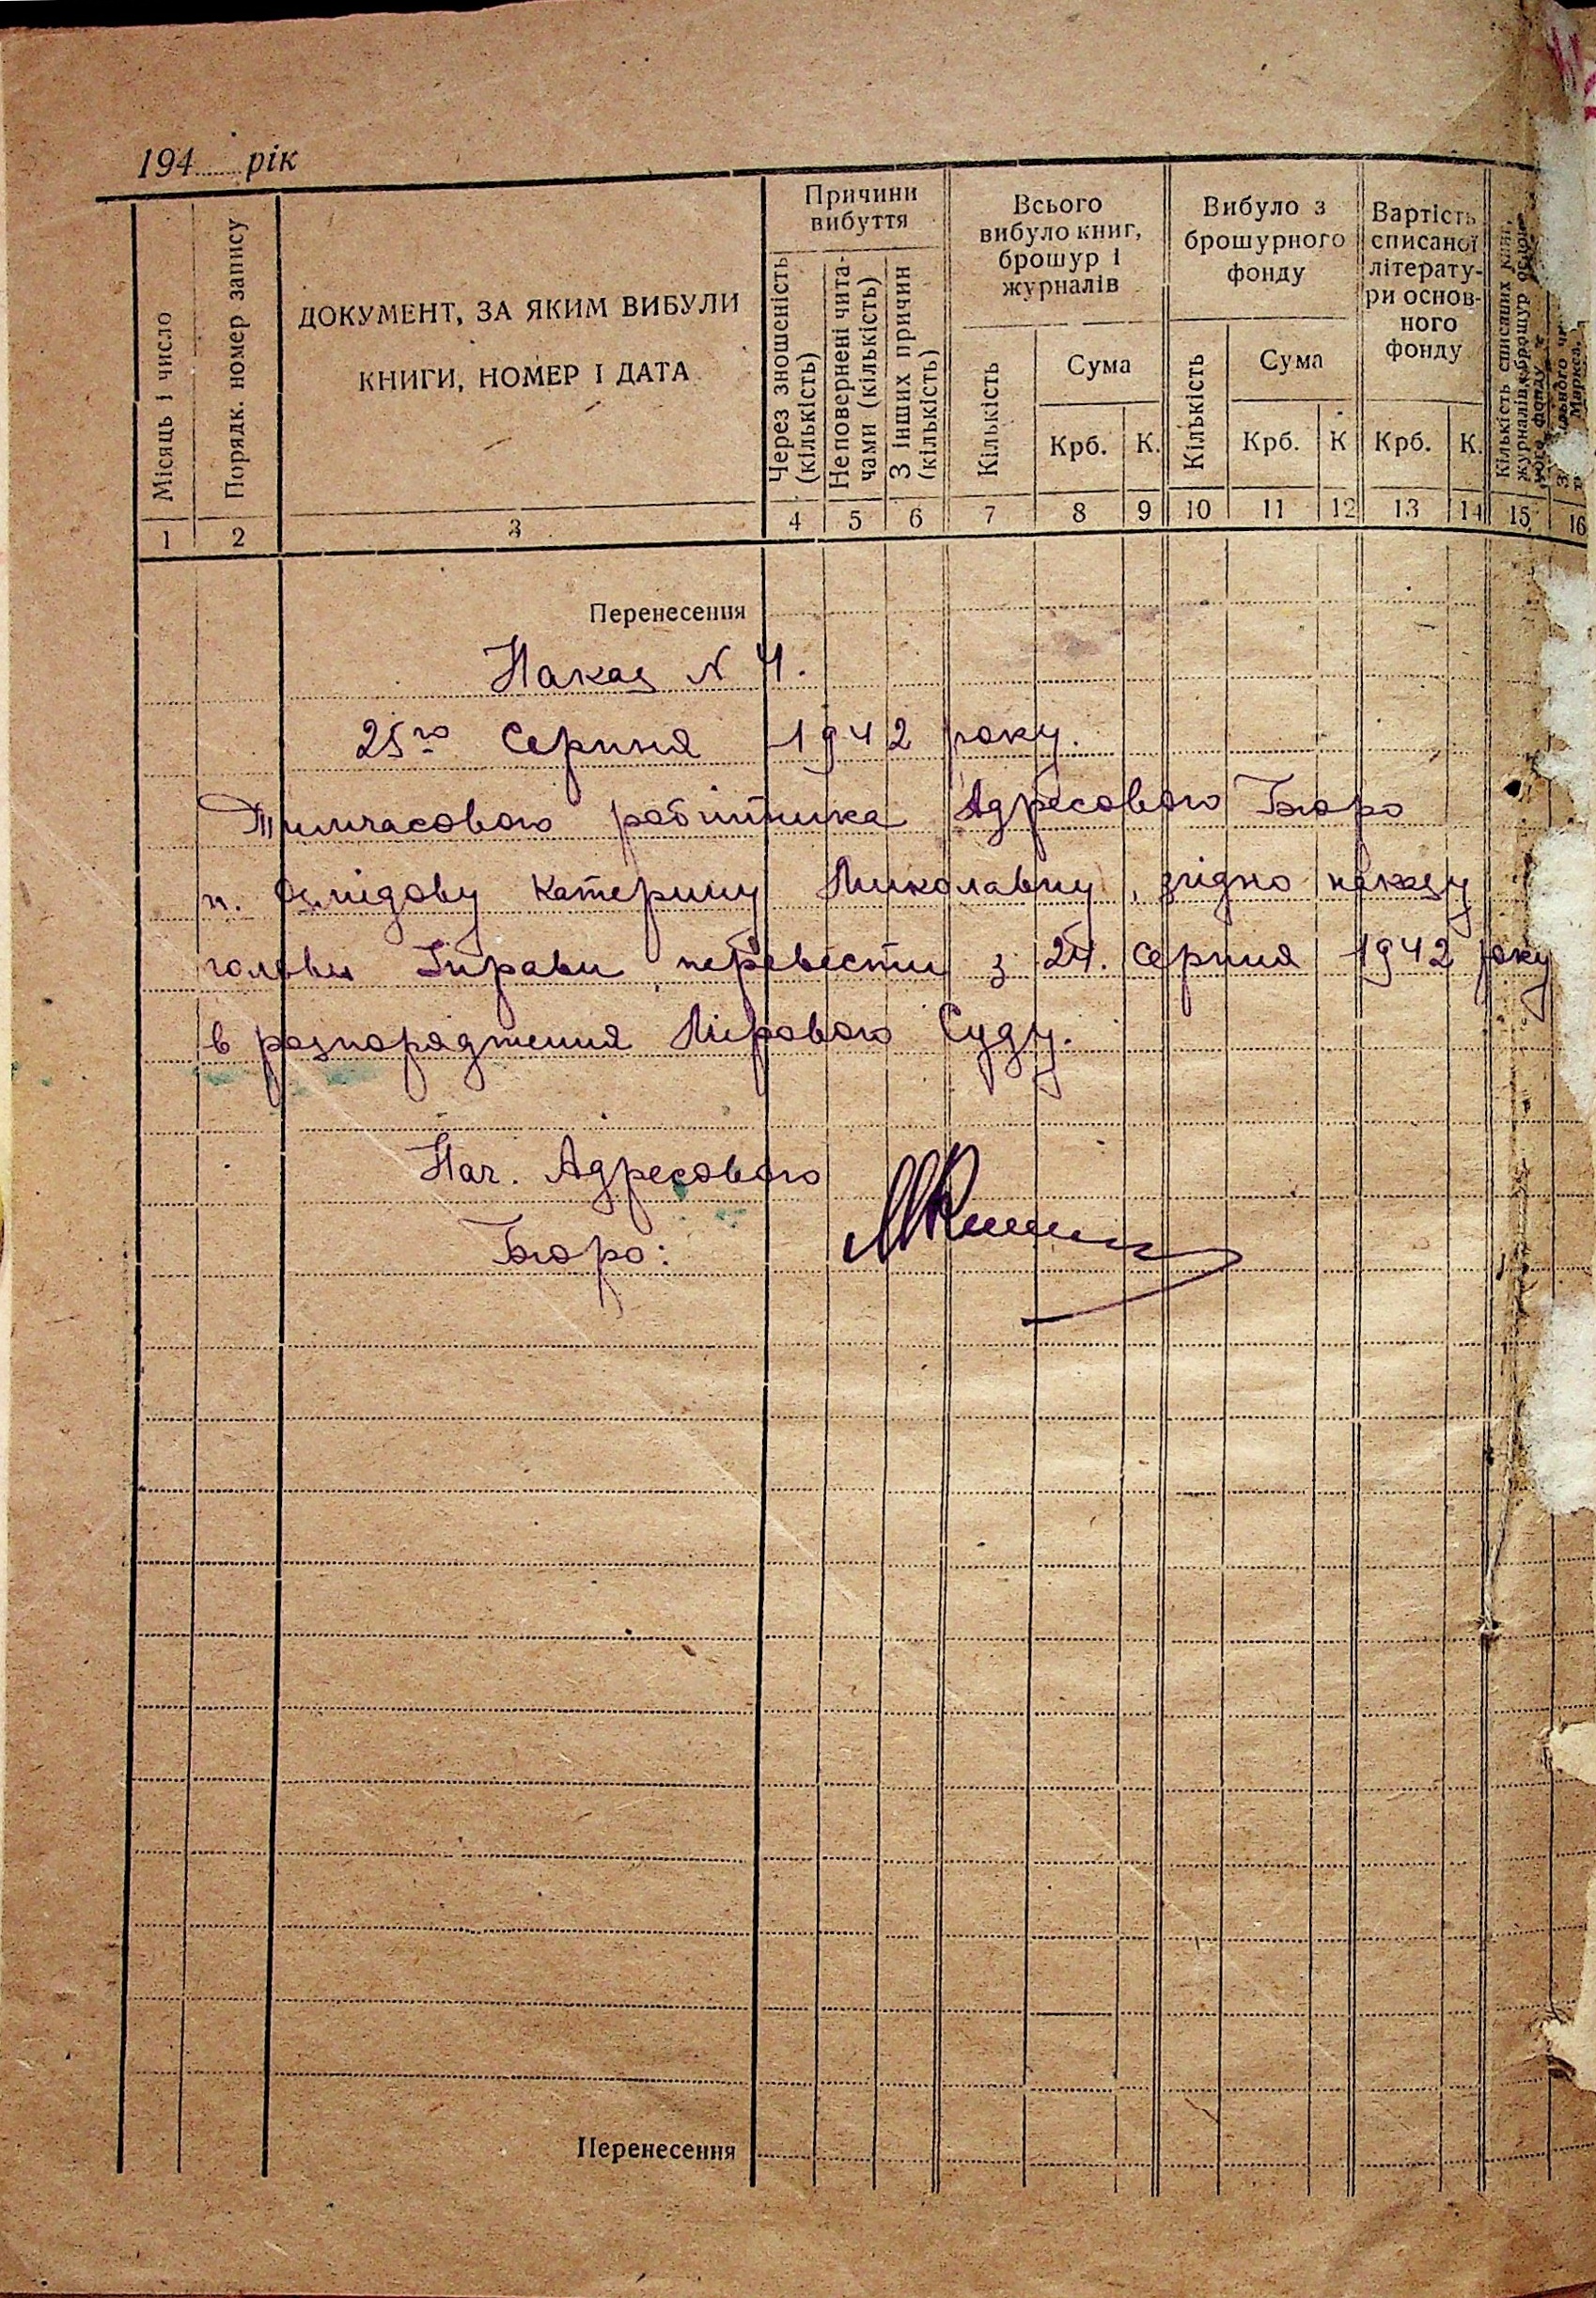 194 рік
Місяць і число
Порядк. номер запису
ДОКУМЕНТ, ЗА ЯКИМ ВИБУЛИ
КНИГИ, НОМЕР І ДАТА
Причини
вибуття
Через зношеність
(кількість)
Неповернені чита-
чами (кількість)
З інших причин
(кількість)
Всього
вибуло книг,
брошур і
журналів
Кількість
Сума
Крб. К.
Вибуло з
брошурного
фонду
Кількість
Сума
Крб. К
Вартість
списаної
літерату-
ри основ-
ного
фонду
Крб. К.
Кількість списаних книг,
журналів, брошур
фонду
Маркса,
1 2 3 4 5 6 7 8 9 10 11 12 13 14 15 16
Перенесення
Наказ N 4.
25го Серпня 1942 року.
Тимчасового робітника Адресового Бюро
п. Катерину Миколавну, згідно наказу
голови Управи перевести з 24. серпня 1942 року
в розпорядження Мірового Суду.
Нач. Адресового
Бюро:
Перенесення